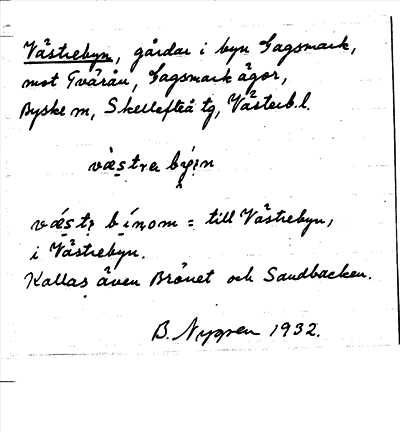 Västrebyn, gårdar i byn Gagsmark,
mot Tvärån, Gagsmark ägor,
Byske sn, Skellefteå tg, Västerb.l.
væstrer byin
væstr binom = till Västrebyn,
i Västrebyn.
Kallas även Brönet och Sandbacken.
B. Nygren 1932.